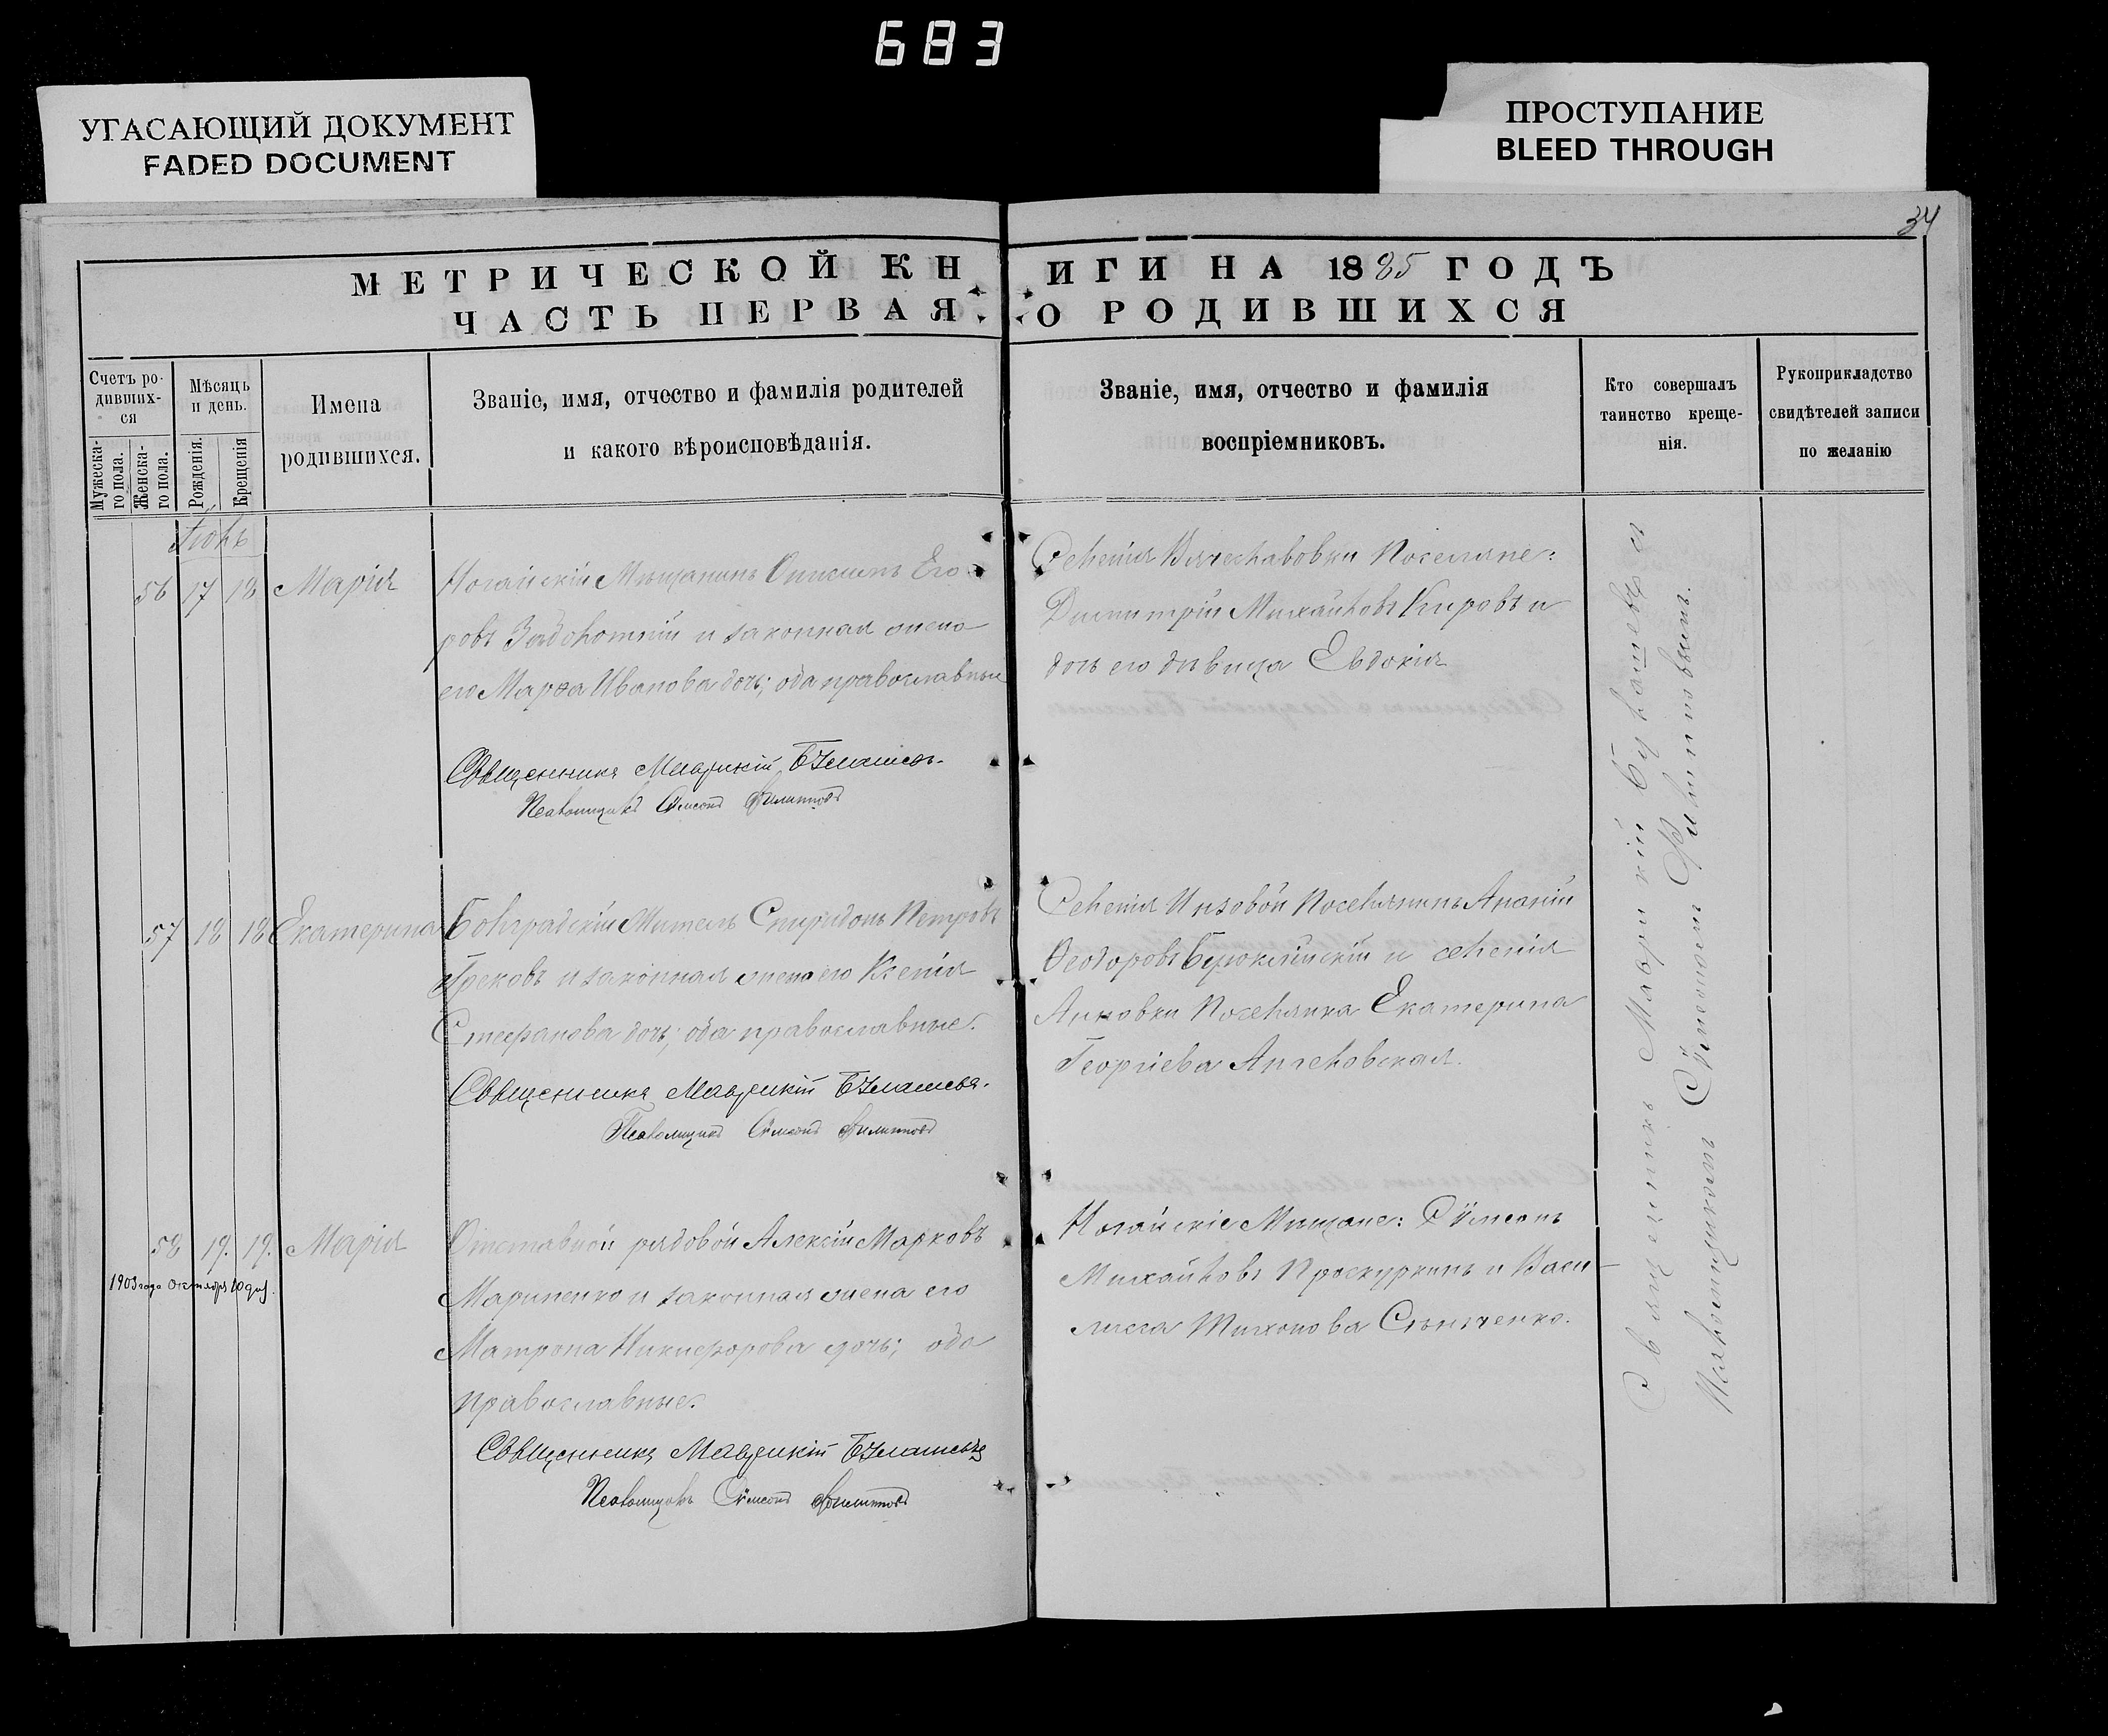 683
УГАСАЮЩИЙ ДОКУМЕНТ
FADED DOCUMENT
ПРОСТУПАНИЕ
BLEED THROUGH
34
МЕТРИЧЕСКОЙ КНИГИ НА 1885 ГОДЪ
ЧАСТЬ ПЕРВАЯ О РОДИВШИХСЯ
Счетъ ро-
дивших-
ся
Мужеска-
го пола.
Женска-
го пола.
Мѣсяцъ
и день.
Рожденія.
Крещенія
Имена
родившихся.
Званіе, имя, отчество и фамилія родителей
и какого вѣроисповѣданія.
Званіе, имя, отчество и фамилія
воспріемниковъ.
Кто совершалъ
таинство креще-
нія.
Рукоприкладство
свидѣтелей записи
по желанію
56 17 18 Марія
Ногайскій Мѣщанинъ Его-
ровъ и законная жена
его Марѳа Иванова дочь; оба православные
Священникъ Маврикій
Псаломщикъ Сѵмеонъ Филипповъ
Селенія Вячеславовки Поселяне:
Димитрій Михайловъ Кировъ и
дочь его дѣвица Евдокія
57 18 18 Екатерина
Болградскій Житель Спиридонъ Петровъ
Грековъ и законная жена его Ксенія
Стефанова дочь; оба православные.
Священникъ Маврикій
Псаломщикъ Сѵмеонъ Филипповъ
Селенія Инзовой Поселянинъ Ананій
Ѳеодоровъ и селенія
Анновки Поселянка Екатерина
Георгіева Ангеловская.
58 19. 19. Марія
1903 года Октября 10 дня.
Отставной рядовой Алексій Марковъ
Мариненко и законная жена его
Матрона Никифорова дочь; оба
православные.
Священникъ Маврикій
Псаломщикъ Сѵмеонъ Филипповъ
Ногайскіе Мѣщане: Сѵмеонъ
Михайловъ Проскуркинъ и Васи-
лисса Тихонова
Священникъ Маврикій
Псаломщикомъ Сѵмеономъ Филипповымъ.